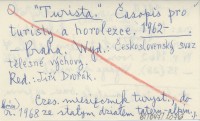 "Turista". Časopis pro
turisty a horolezce, 1962-
- Praha. Wyd.: Československý svaz
tělesné výchovy.
Red.: Jiří Dvořák.
Czes. miesięcznik turysty, do
r. 1968 ze stałym działem